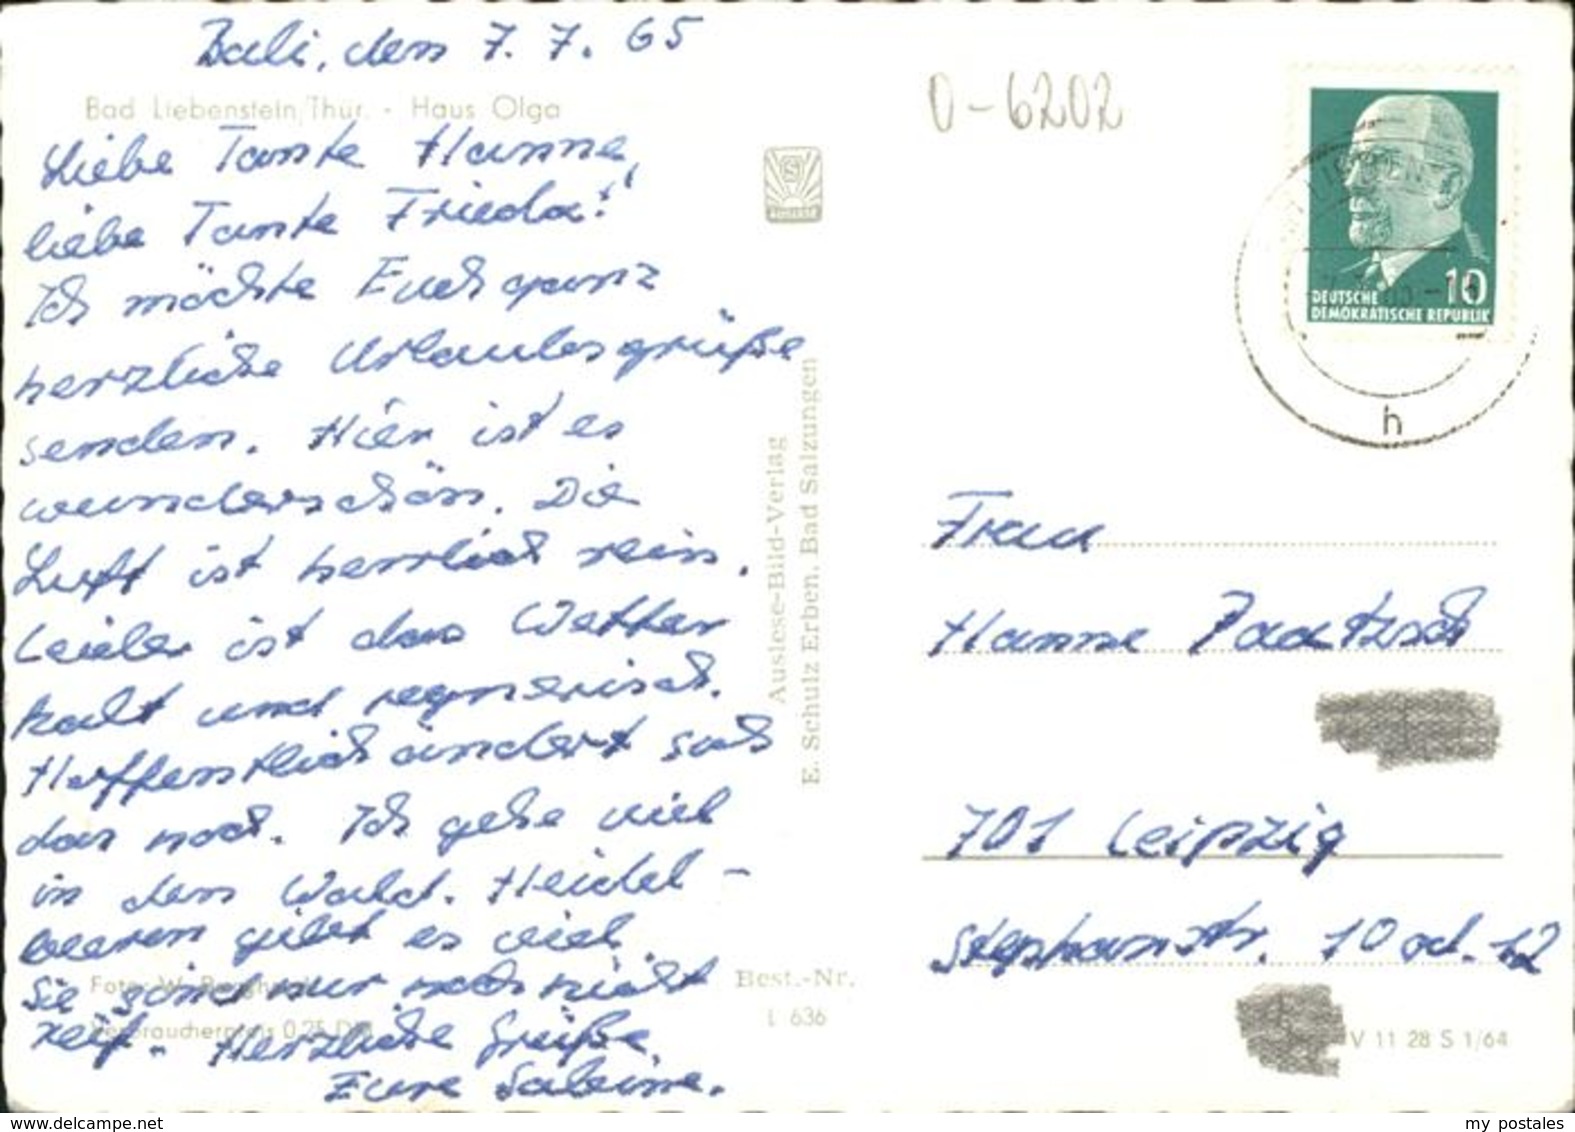 Bali, den 7. 7. 65
Bad Liebenstein/Thür. - Haus Olga
Liebe Tante Hanne,
liebe Tante Frieda!
Ich möchte Euch ganz
herzliche Urlaubsgrüße
senden. Hier ist es
wunderschön. Die
Luft ist herrlich rein.
Leider ist das Wetter
kalt und regnerisch.
Hoffentlich ändert sich
das noch. Ich gehe viel
in den Wald. Heidel-
beeren gibt es viel,
sie sind nur noch nicht
reif. Herzliche Grüße,
Eure Sabine.
Foto: W.
Verbraucherpreis 0,25 DM
Auslese-Bild-Verlag
E. Schulz Erben, Bad Salzungen
Best.-Nr.
L 636
0-6202
10
DEUTSCHE
DEMOKRATISCHE REPUBLIK
h
Frau
Hanne
701 Leipzig
Stephanstr. 10 od. 12
V 11 28 S 1/64
www.delcampe.net
my_postales